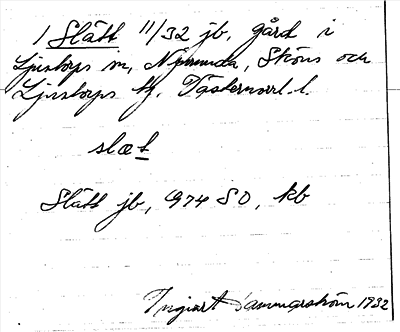 1 Slätt 11/32 jb, gård i
Ljustorps m, Njurunda, Sköns och
Ljustorps tg. Västernorrl. l.
slæt
Slätt jb, 974 SO, kb
Ingvart Hammarström 1932